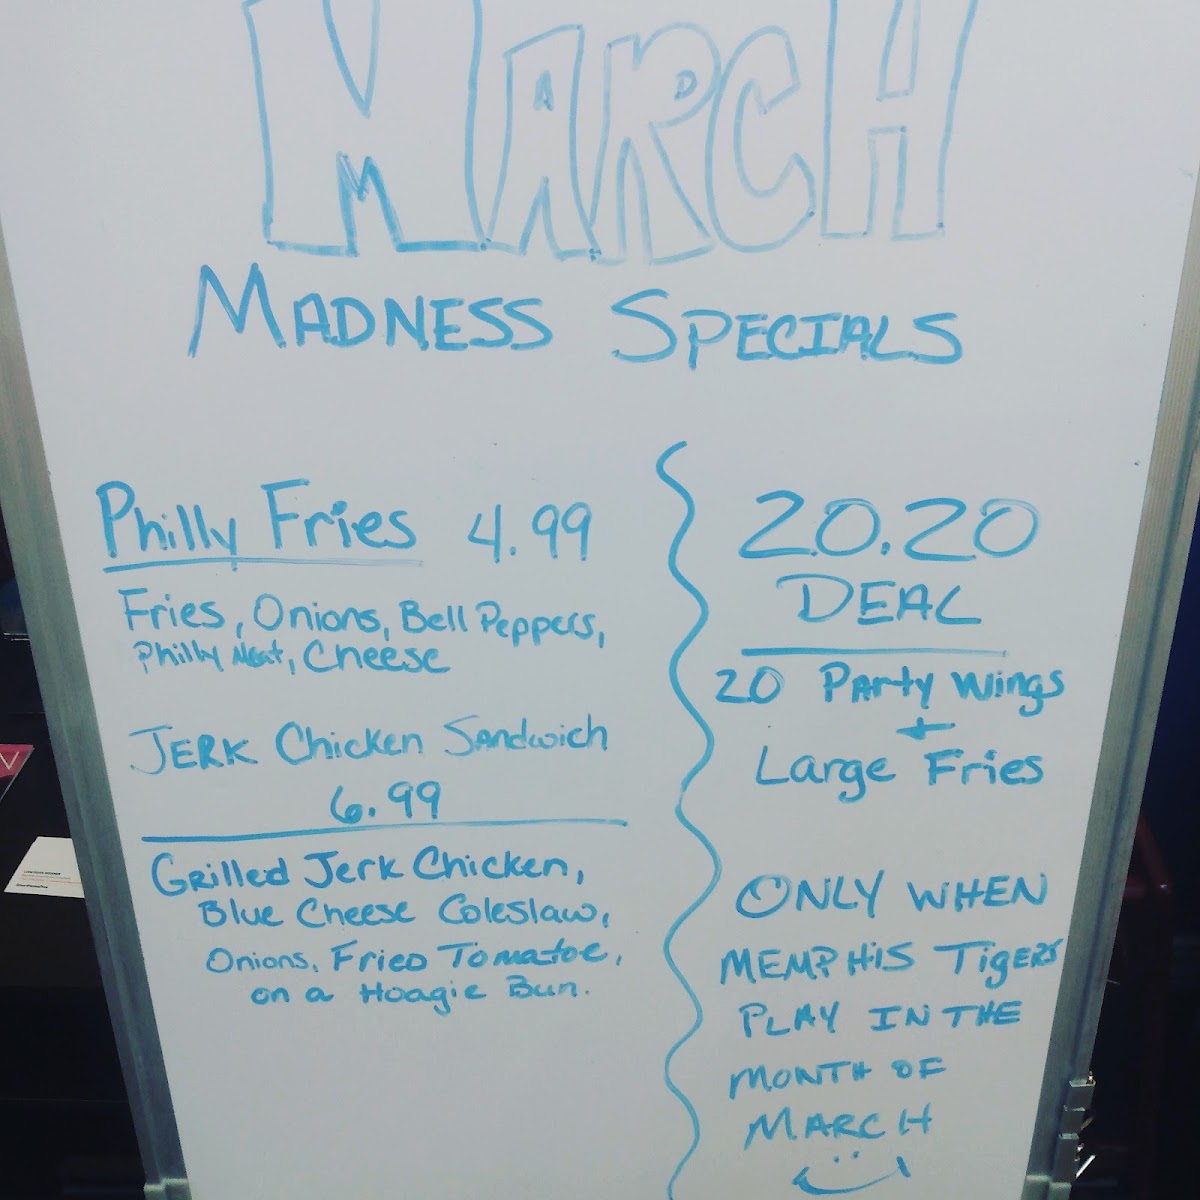 MARCH
MADNESS SPECIALS
Philly Fries 4.99
Fries, Onions, Bell Peppers,
Philly Meat, Cheese
JERK Chicken Sandwich
6.99
Grilled Jerk Chicken,
Blue Cheese Coleslaw,
Onions, Fried Tomatoe,
on a Hoagie Bun.
20.20
DEAL
20 Party Wings
+
Large Fries
ONLY WHEN
MEMPHIS TigERS
PLAY IN THE
MONTH OF
MARCH